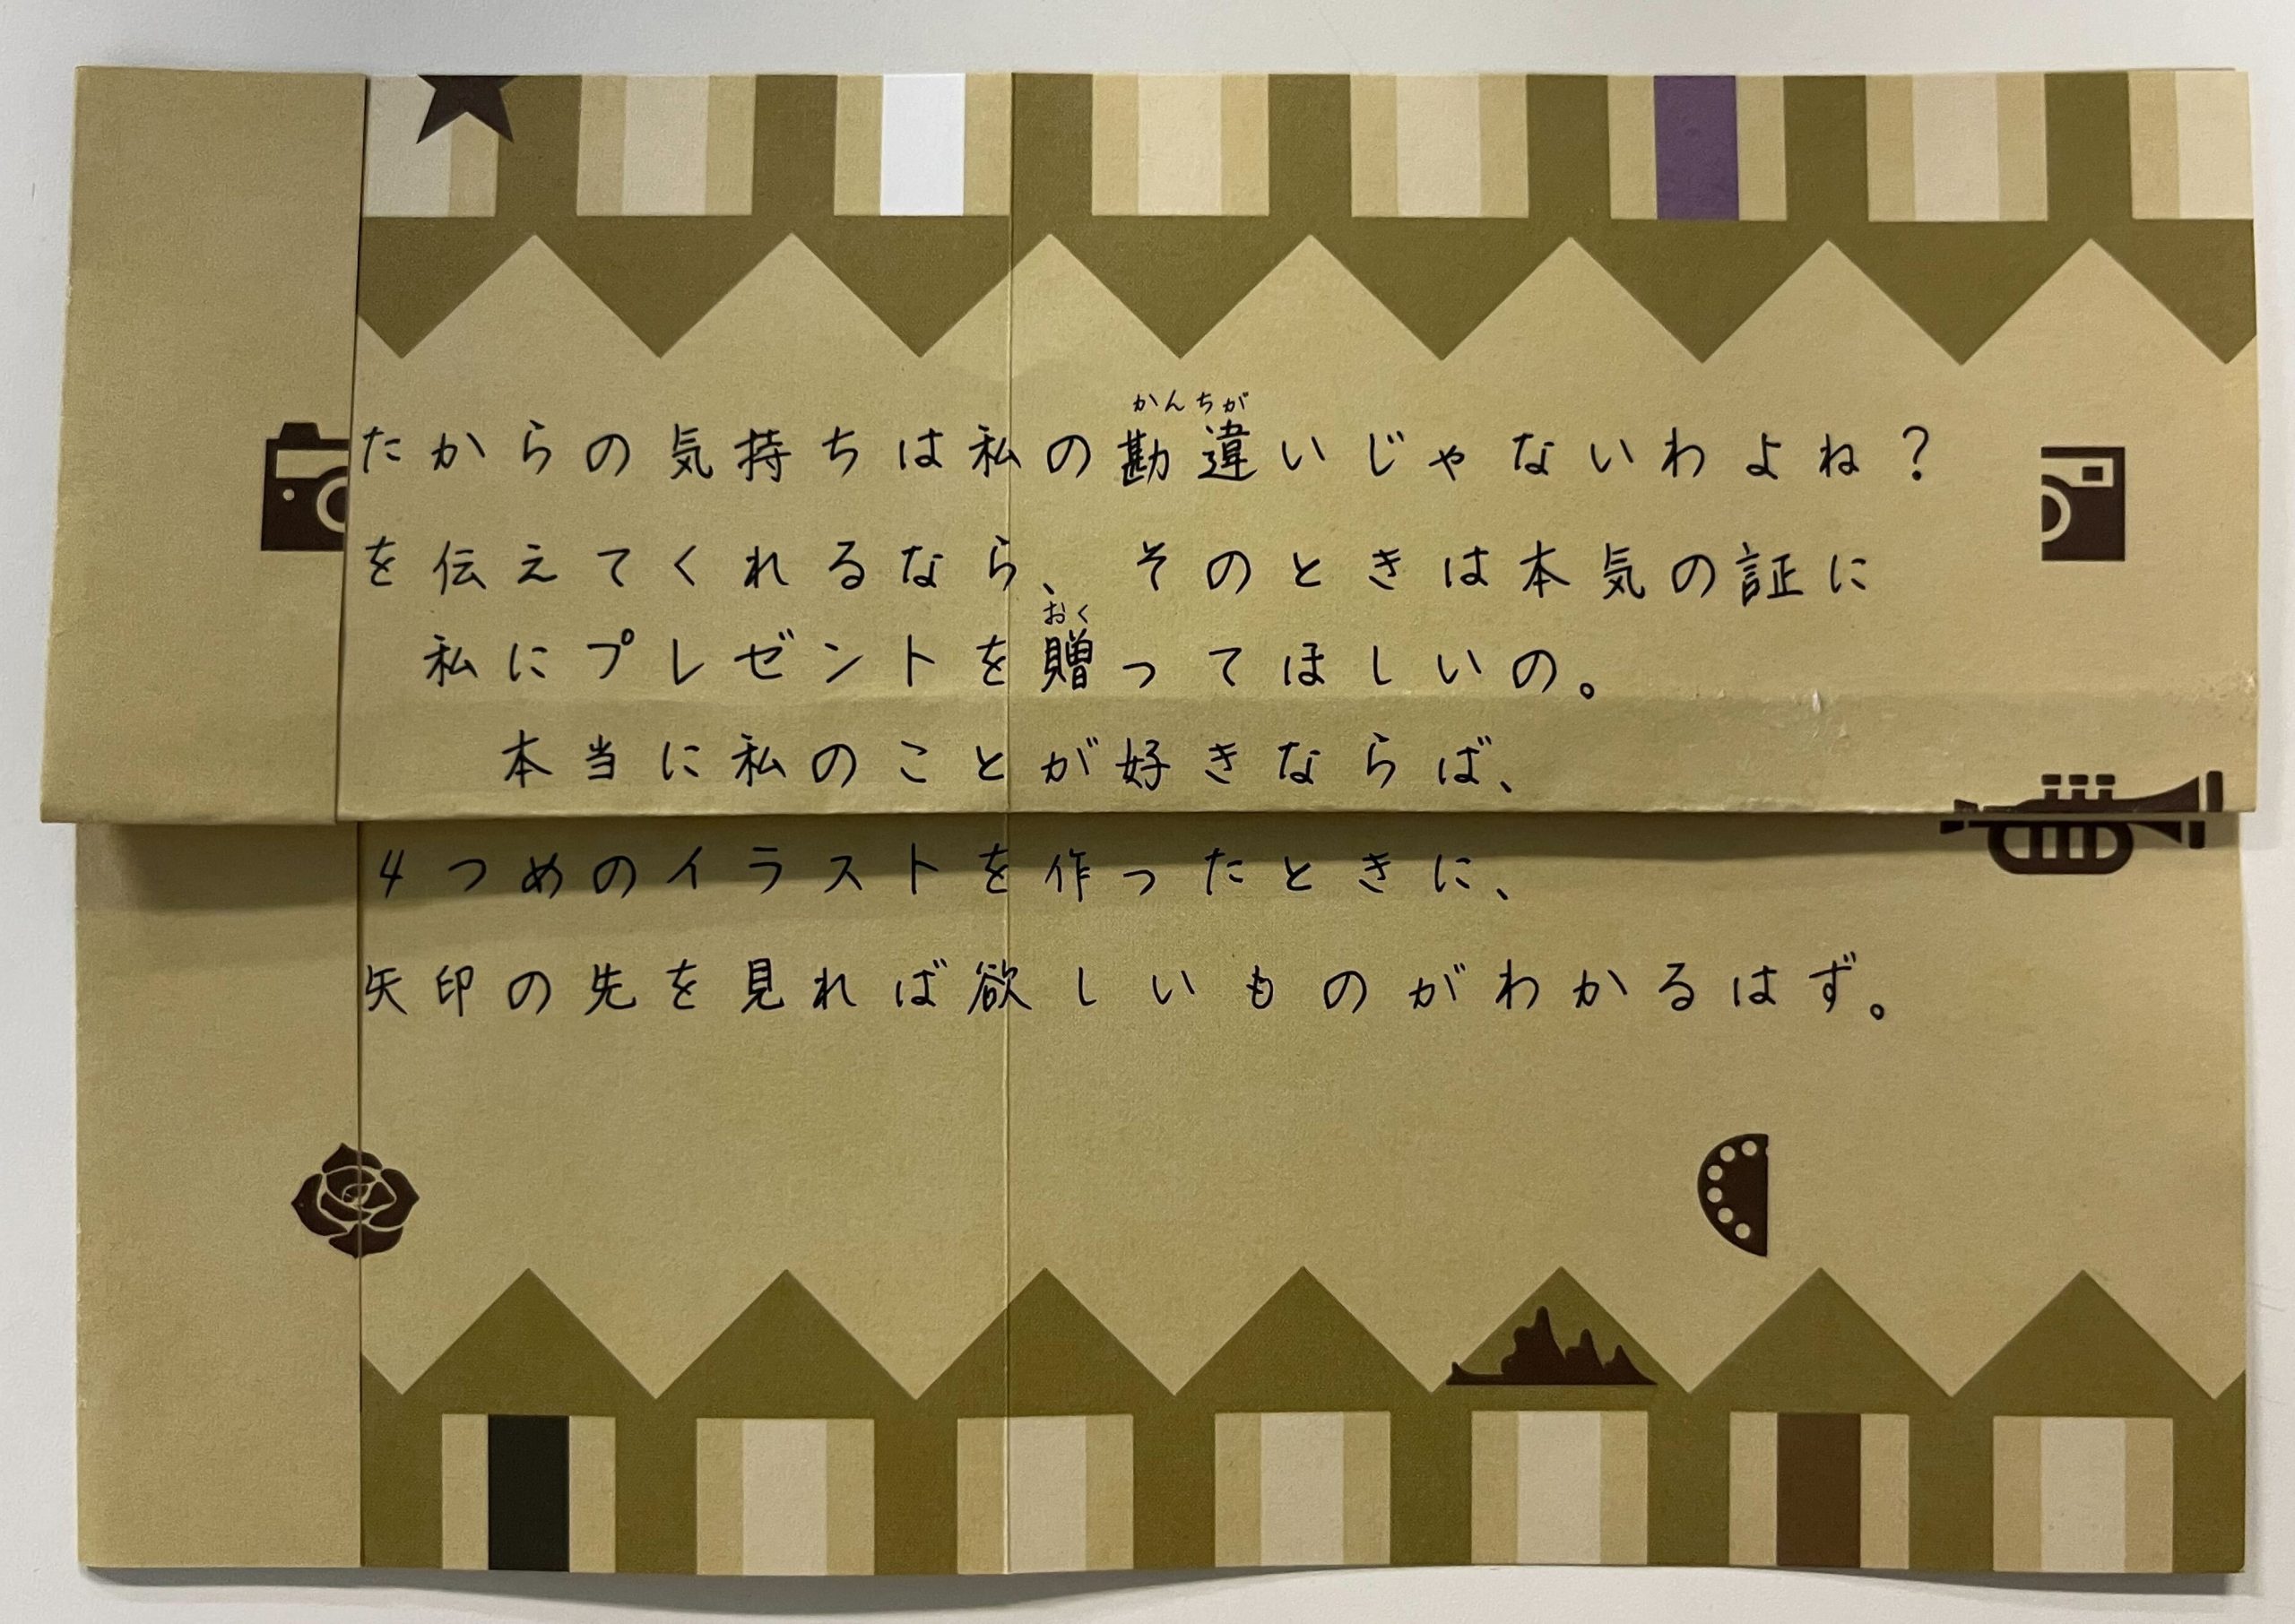 かんちが
たからの気持ちは私の勘違いじゃないわよね？
を伝えてくれるなら、そのときは本気の証に
おく
私にプレゼントを贈ってほしいの。
本当に私のことが好きならば、
4つめのイラストを作ったときに、
矢印の先を見れば欲しいものがわかるはず。